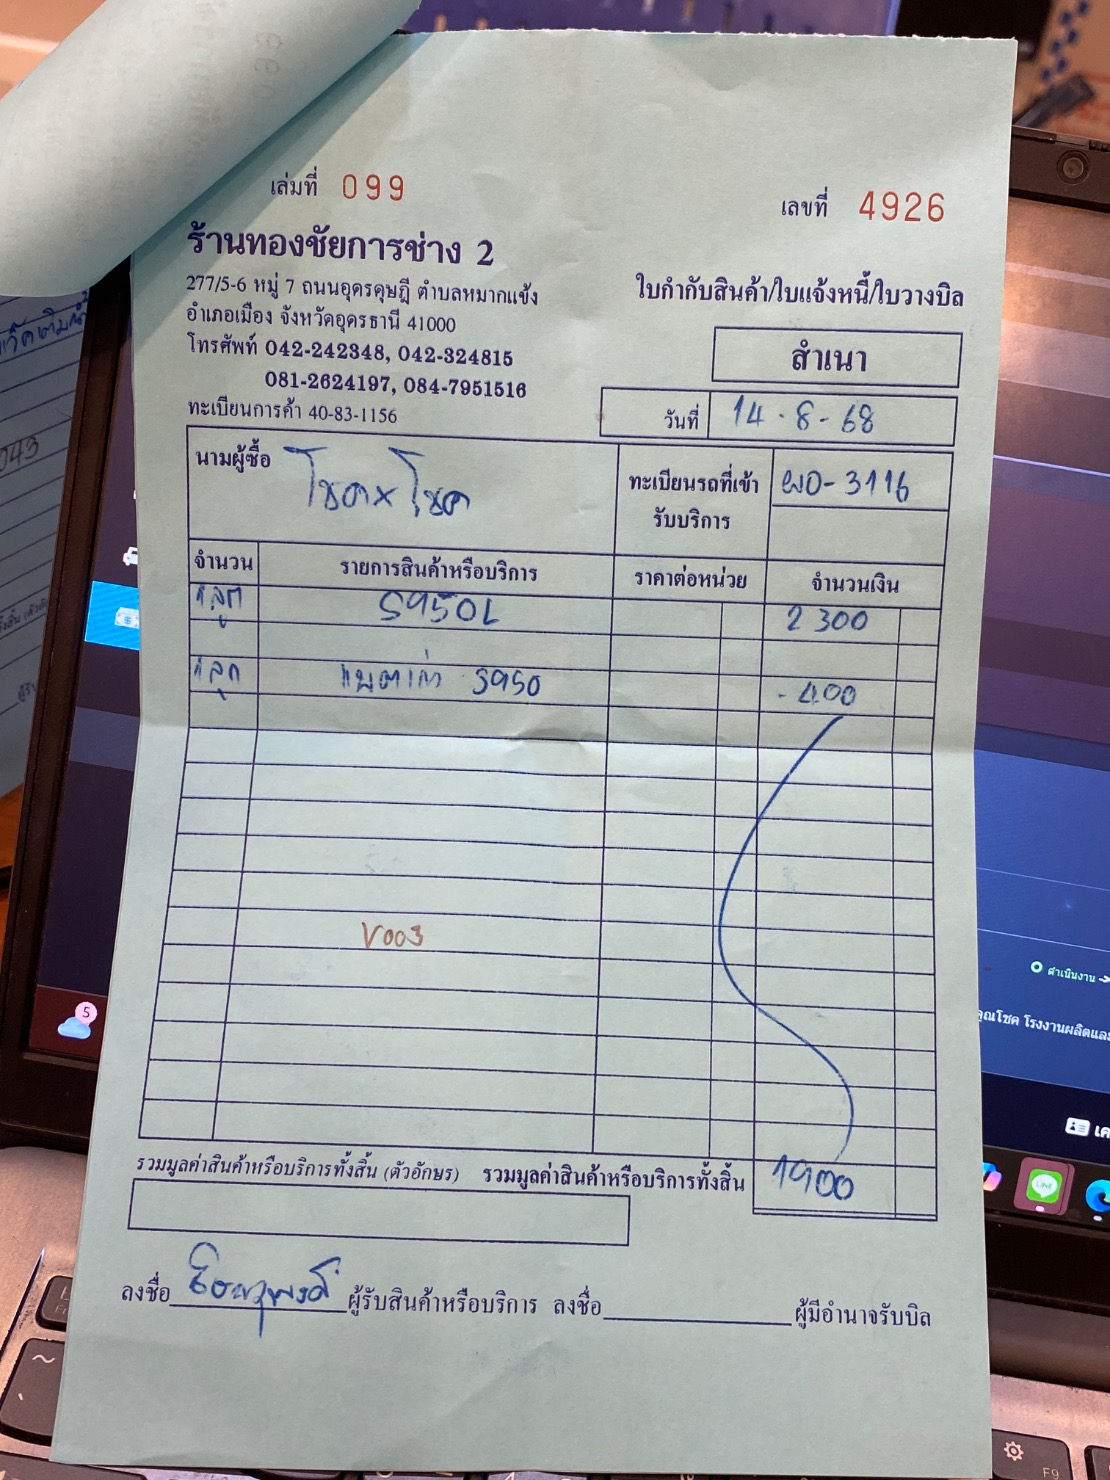 เล่มที่ 099
เลขที่ 4926
ร้านทองชัยการช่าง 2
277/5-6 หมู่ 7 ถนนอุดรดุษฎี ตำบลหมากแข้ง
อำเภอเมือง จังหวัดอุดรธานี 41000
โทรศัพท์ 042-242348, 042-324815
081-2624197, 084-7951516
ทะเบียนการค้า 40-83-1156
ใบกำกับสินค้า/ใบแจ้งหนี้/ใบวางบิล
สำเนา
วันที่ 14-8-68
นามผู้ซื้อ โชค x โชค
ทะเบียนรถที่เข้ารับบริการ
3116
จำนวน รายการสินค้าหรือบริการ ราคาต่อหน่วย จำนวนเงิน
1 ลูก S950L 2300
1 ลูก แบตเก่า S950 -400
V003
รวมมูลค่าสินค้าหรือบริการทั้งสิ้น (ตัวอักษร) รวมมูลค่าสินค้าหรือบริการทั้งสิ้น 1900
ลงชื่อ ผู้รับสินค้าหรือบริการ ลงชื่อ ผู้มีอำนาจรับบิล
043
5
ดำเนินงาน
โรงงานผลิตและ
LINE
F9